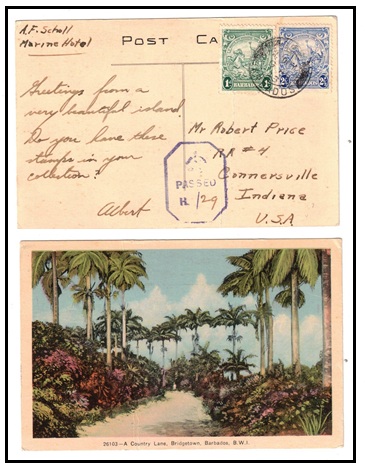 A.F. Scholl
Marine Hotel
POST CA
Greetings from a
very beautiful island.
Do you have these
stamps in your
collection?
Albert
BARBADOS
BARBADOS
DOS
PASSED
H. /29
Mr Robert Price
RR #4
Connersville
Indiana
U.S.A
26103—A Country Lane, Bridgetown, Barbados, B.W.I.